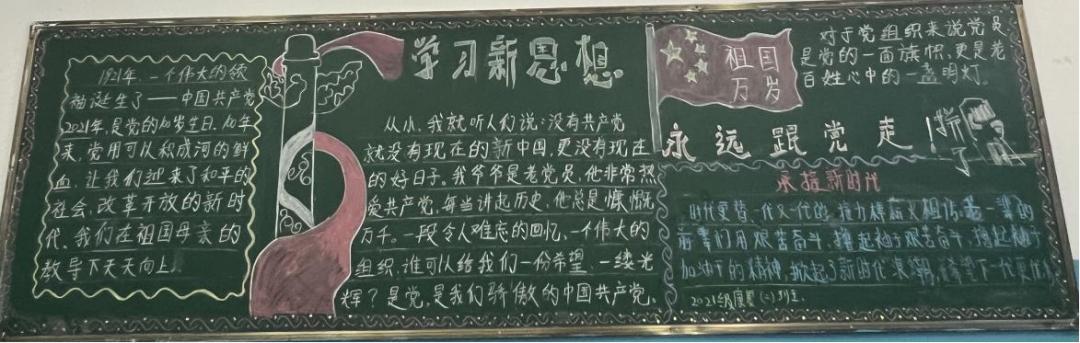 1921年,一个伟大的领
袖诞生了——中国共产党
2021年,是党的100岁生日。100年
来,党用可以积成河的鲜
血,让我们迎来了和平的
社会,改革开放的新时
代。我们在祖国母亲的
教导下天天向上
学习新思想
从小,我就听人们说:没有共产党
就没有现在的新中国,更没有现在
的好日子。我爷爷是老党员,他非常热
爱共产党,每当讲起历史,他总是慷慨
万千。一段令人难忘的回忆,一个伟大的
组织,谁可以给我们一份希望、一缕光
辉?是党,是我们骄傲的中国共产党。
祖国
万岁
对于党组织来说党员
是党的一面旗帜,更是老
百姓心中的一盏明灯。
永远跟党走!
承接新时代
时代更替一代又一代的接力棒
前辈们用艰苦奋斗,撸起袖子
加油干的精神,掀起了新时代浪潮,希望下一代更
2021级